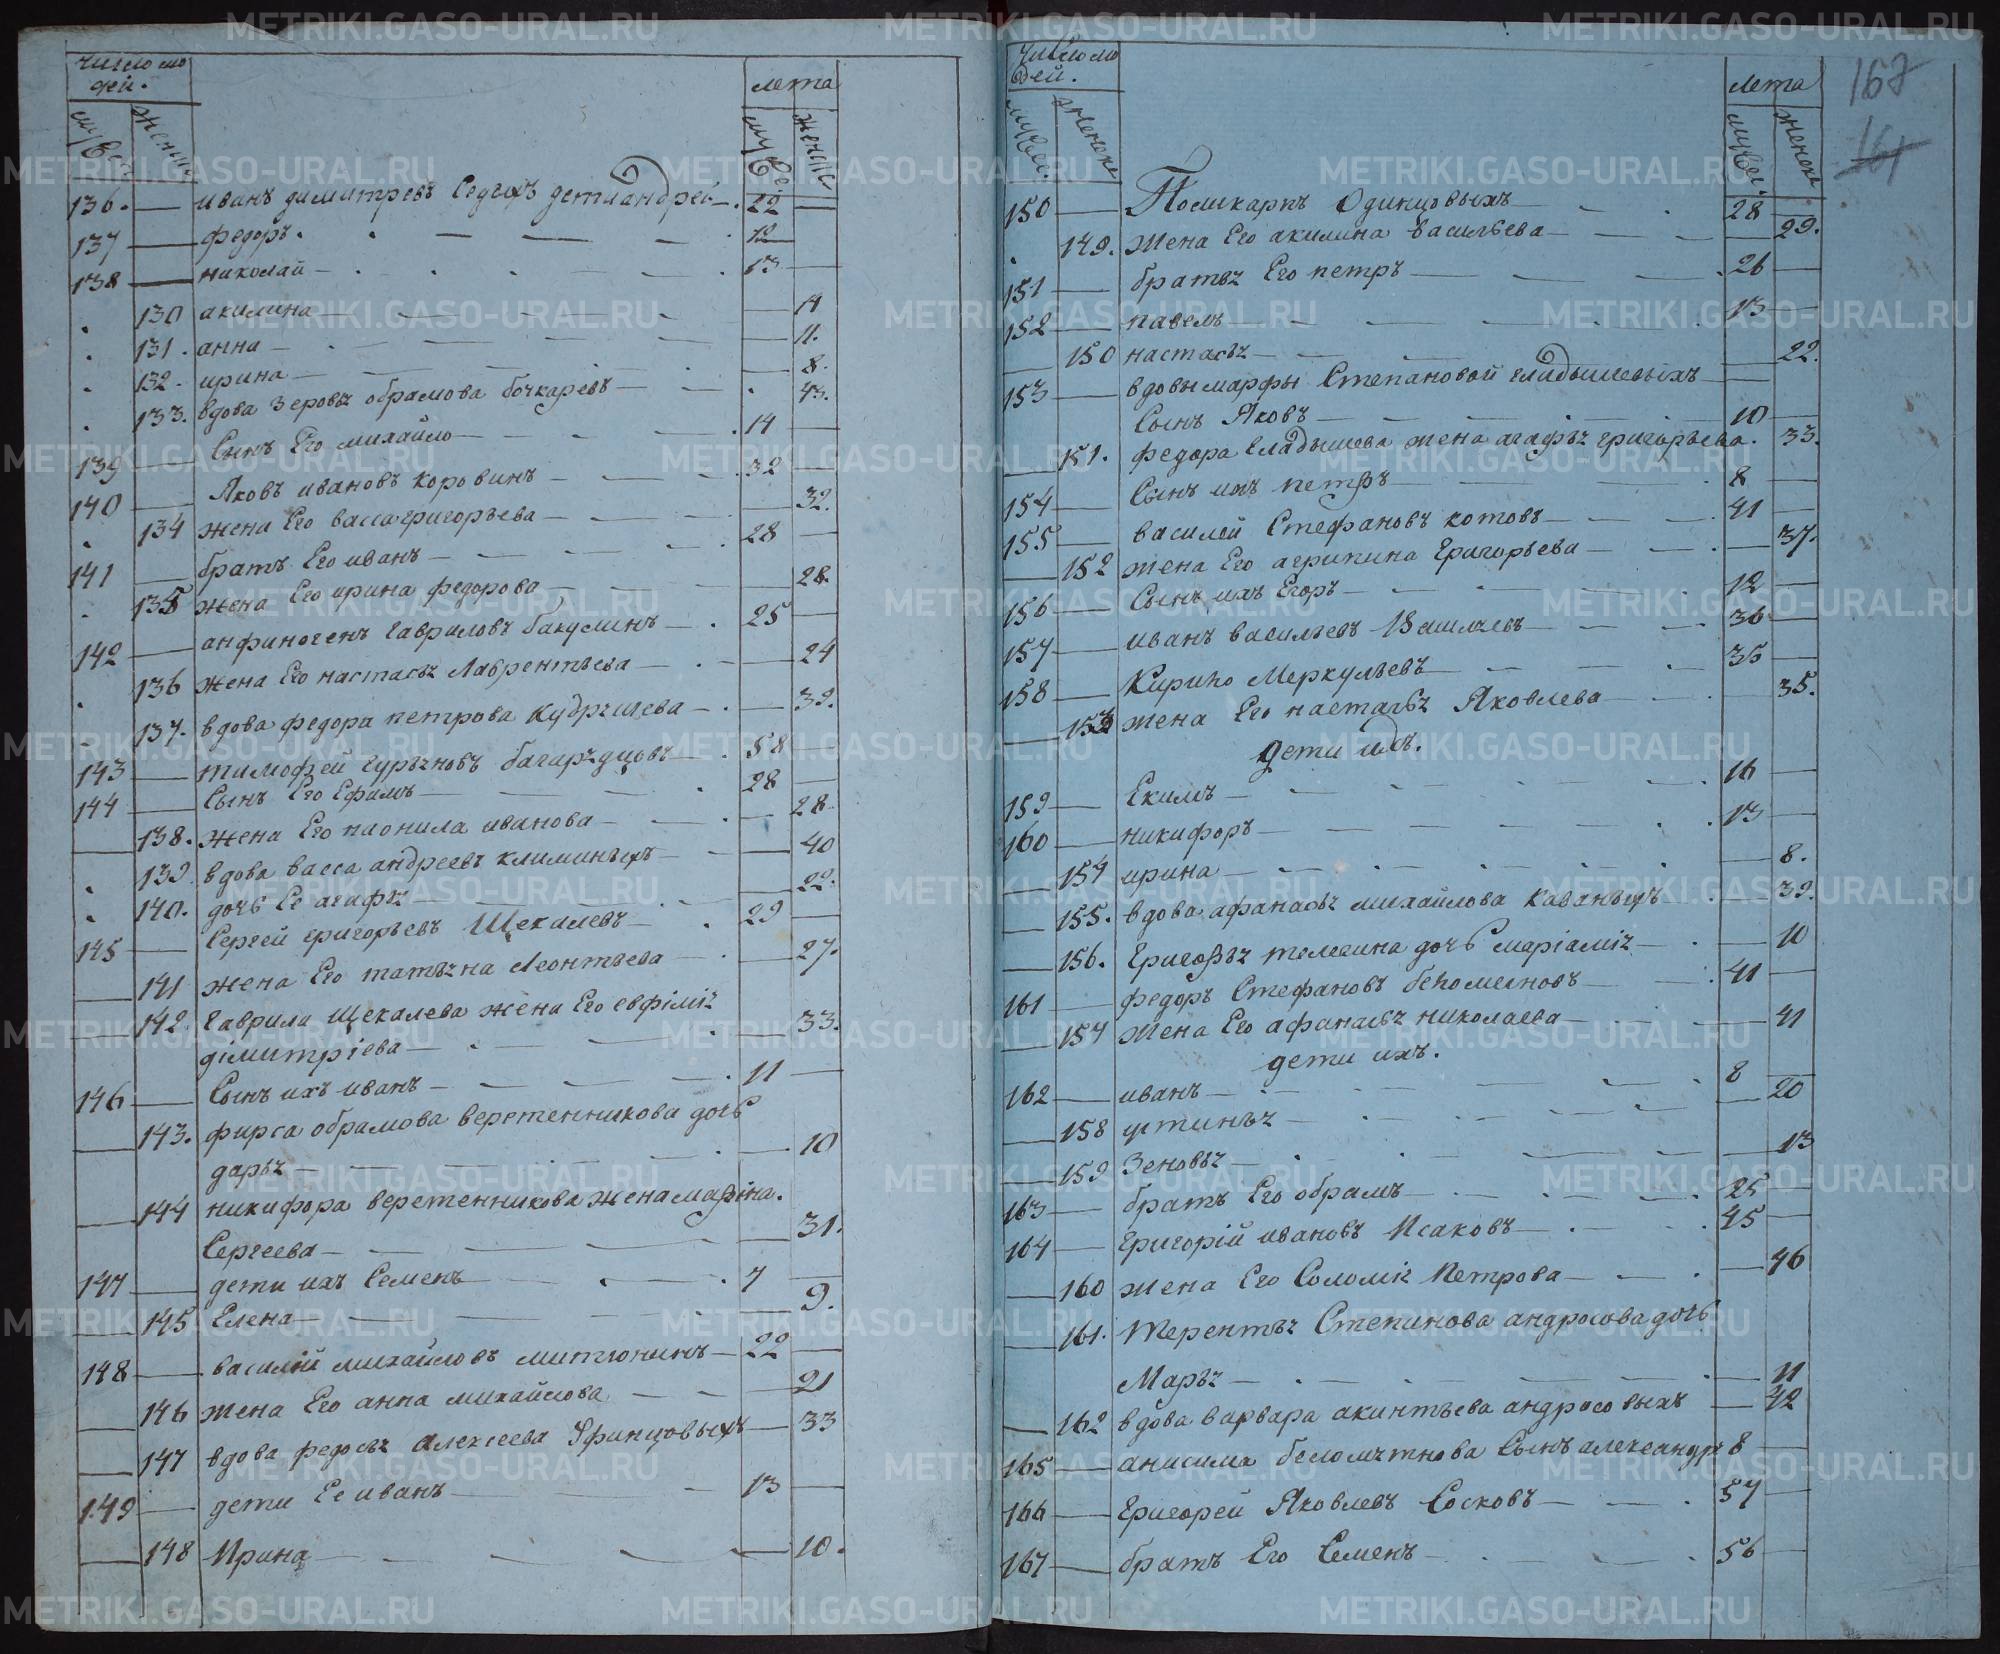 число лю
дей.
лета
муж
женск
муже
женск
136. иванъ димитревъ Седыхъ дети андрей 22
137 федоръ. 18
138 николай 13
130 акилина 14
131. анна 11.
132. ирина 8.
133. вдова обрамова бочкаревъ 43.
139 Сынъ Его михайло 14
140 Яковъ ивановъ коровинъ 32
134 жена Его васса григорьева 32.
141 братъ Его иванъ 28
135 жена Его ирина федорова 28.
142 анфиногенъ гавриловъ бакулинъ 25
136 жена Его настасья Лаврентьева 24
137. вдова федора петрова 39.
143 тимофей 58
144 Сынъ Его Ефимъ 28
138. жена Его павнила иванова 28
139. вдова васса андреевъ климиныхъ 40
140. дочь Ее агафья 22.
145 Сергей григорьевъ Щекалевъ 29
141 жена Его татьяна Леонтьева 27.
142. гаврила Щекалева жена Его евфимія
димитріева 33.
146 Сынъ ихъ иванъ 11
143. фирса обрамова веретенникова дочь
дарья 10
144 никифора веретенникова жена марина.
Сергеева 31.
147 дети ихъ Семенъ 7
145 Елена 9.
148 василій михайловъ митюнинъ 22
146 жена Его анна михайлова 21
147 вдова федосья алексеева 33
149 дети Ее иванъ 13
148 Ирина 10.
число лю
дей.
лета
муже
женск
муже
женск
167
161
150 Поликарпъ Одинцовыхъ 28
149. жена Его акилина васильева 29.
151 братья Его петръ 26
152 павелъ 13
150 настасья 22.
153 вдовы марфы Степановой гладышевыхъ
Сынъ Яковъ 10
151. федора гладышева жена агафья григорьева. 33.
154 Сынъ ихъ петръ 8
155 василей Стефановъ котовъ 41
152 жена Его агрипина григорьева 37.
156 Сынъ ихъ Егоръ 12
157 иванъ васильевъ 36
158 Кирило Меркульевъ 35
153 жена Его настасья Яковлева 35.
дети ихъ.
159 Екимъ 16
160 никифоръ 13
154 ирина 8.
155. вдова афанасья михайлова каваныхъ 39.
156. григорья телегина дочь маріамія 10
161 федоръ Стефановъ 41
157 жена Его афанасья николаева 41
дети ихъ.
162 иванъ 8
158 устинья 20
159 Зеновья 13
163 братъ Его обрамъ 25
164 григорій ивановъ Исаковъ 45
160 жена Его Соломія Петрова 46
161. терентья Степинова андросова дочь
Марья 11
162 вдова варвара акинтьева андросовыхъ 42
165 анисима беломытнова Сынъ александръ 8
166 григорей Яковлевъ Сосковъ 57
167 братъ Его Семенъ 56
METRIKI.GASO-URAL.RU